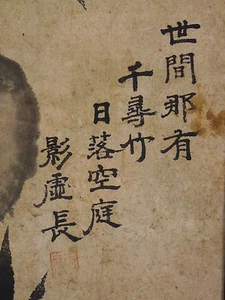 世間那有
千尋竹
日落空庭
影虛長